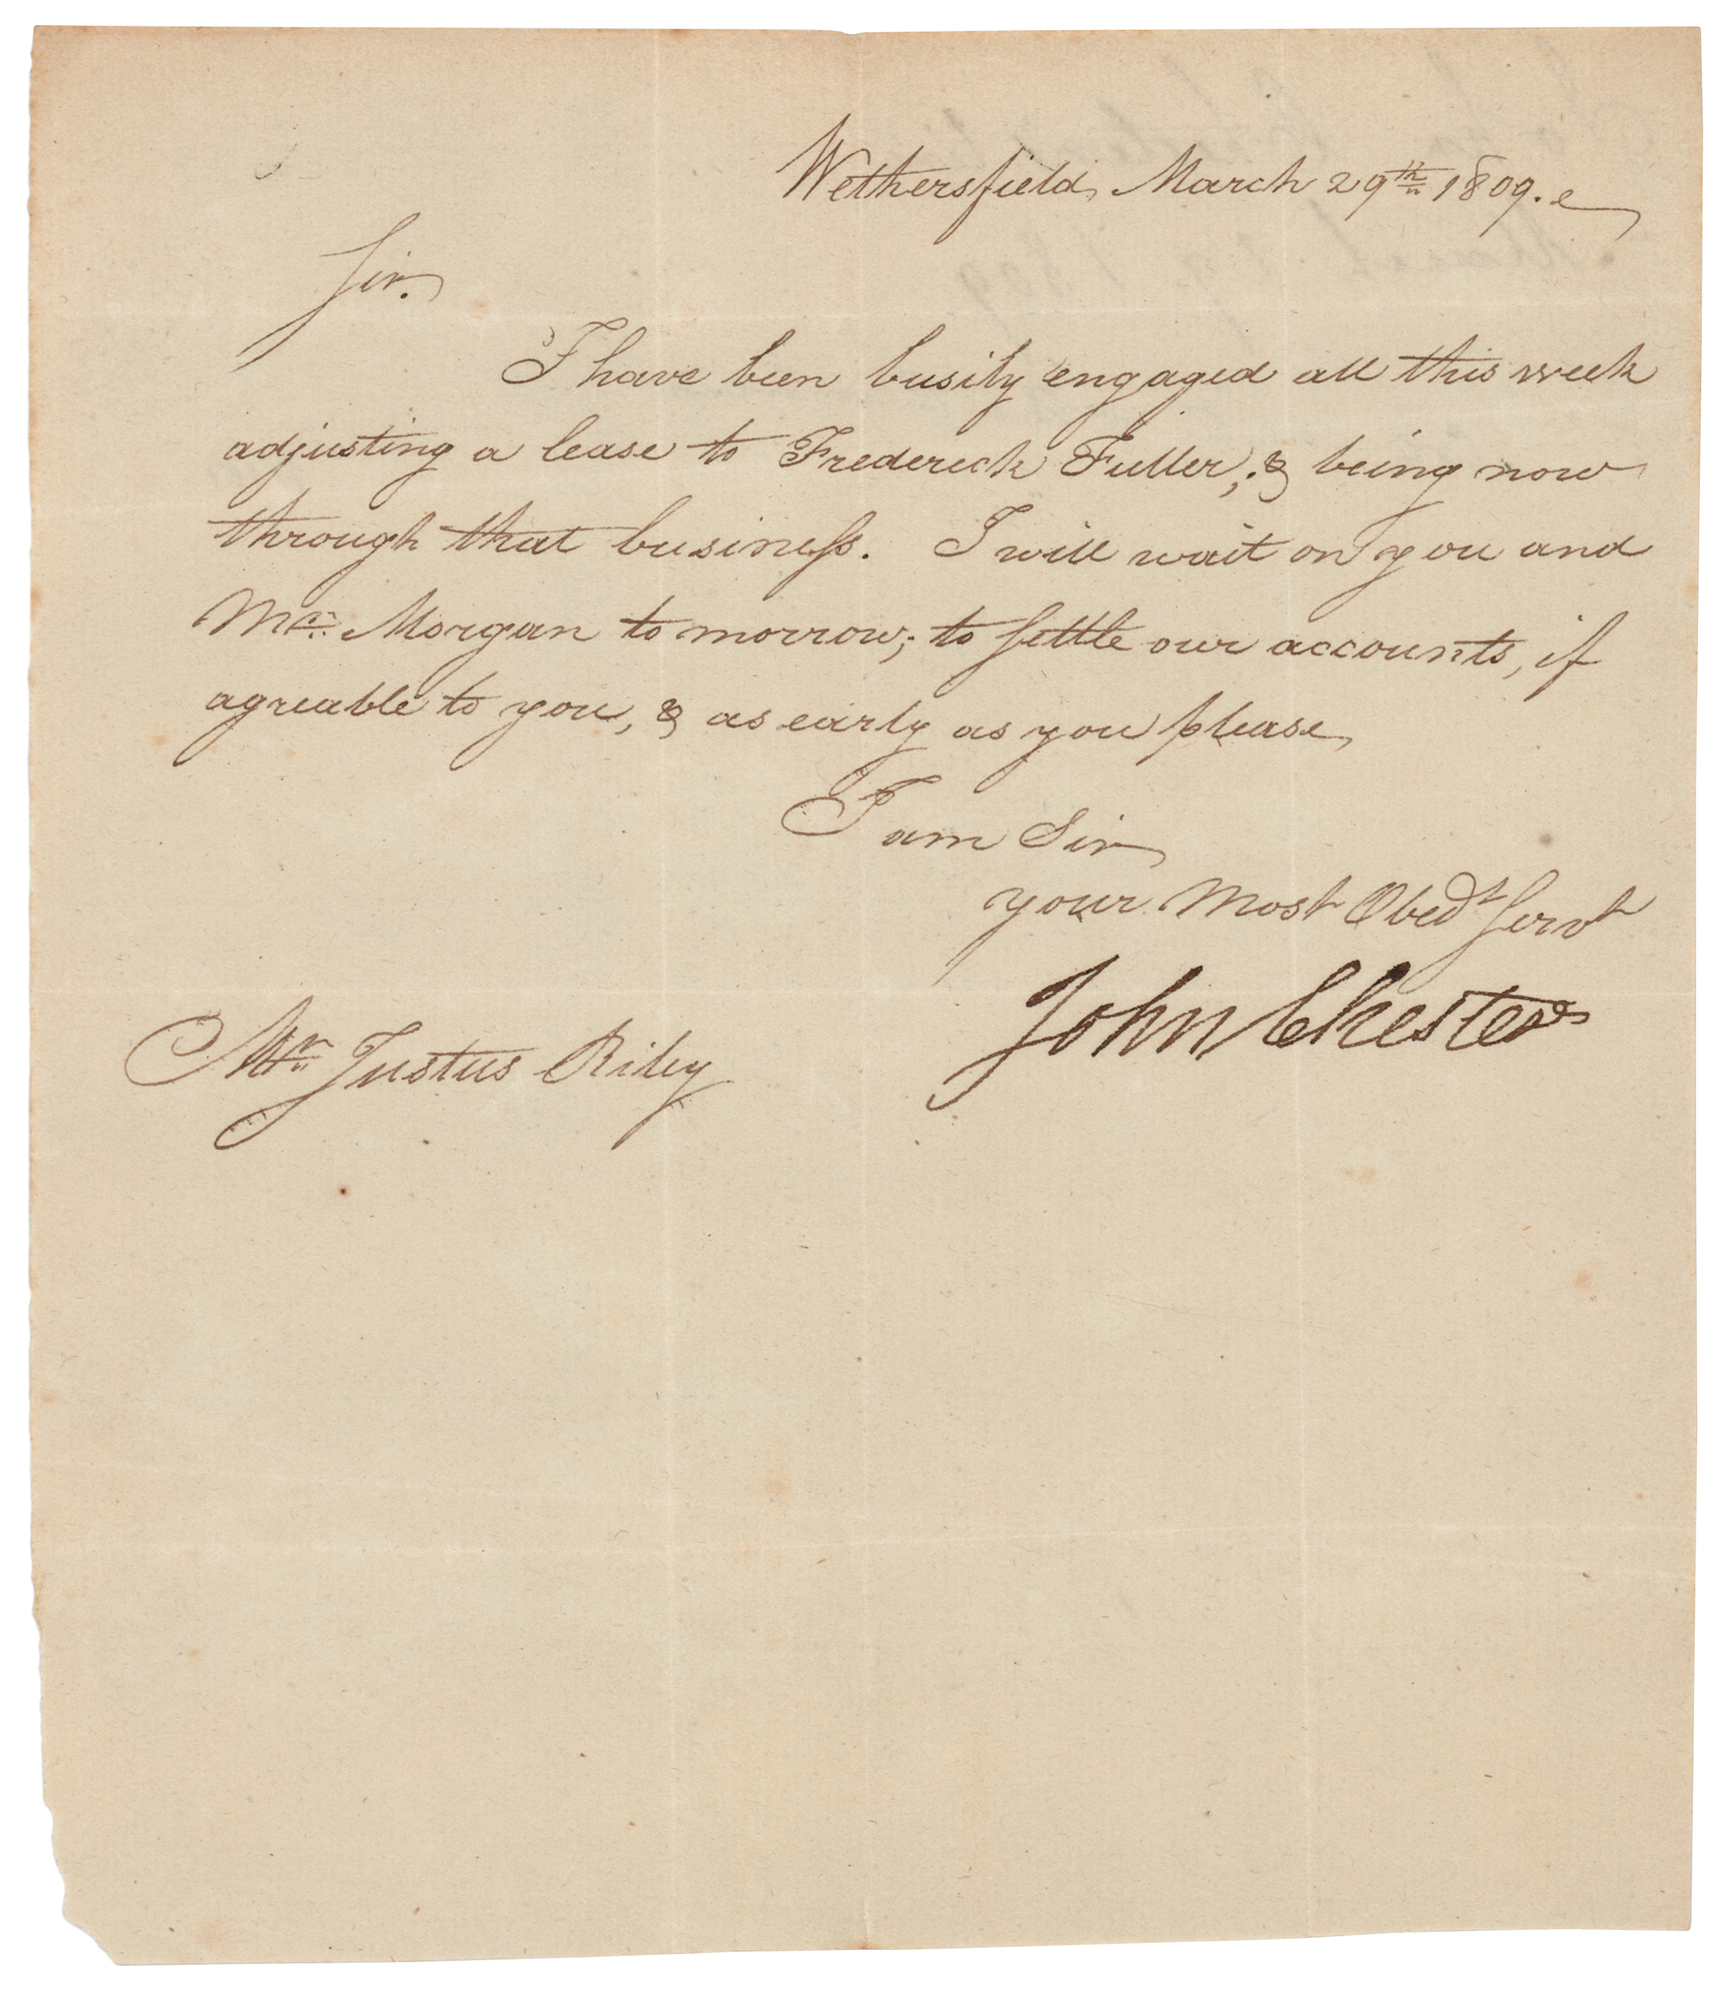 Wethersfield, March 29th 1809.
Sir.
I have been busily engaged all this week
adjusting a lease to Frederick Fuller; & being now
through that business. I will wait on you and
Mr. Morgan to morrow; to settle our accounts, if
agreable to you, & as early as you please,
I am Sir
your Most Obedt Servt
John Chester
Mr. Justus Riley